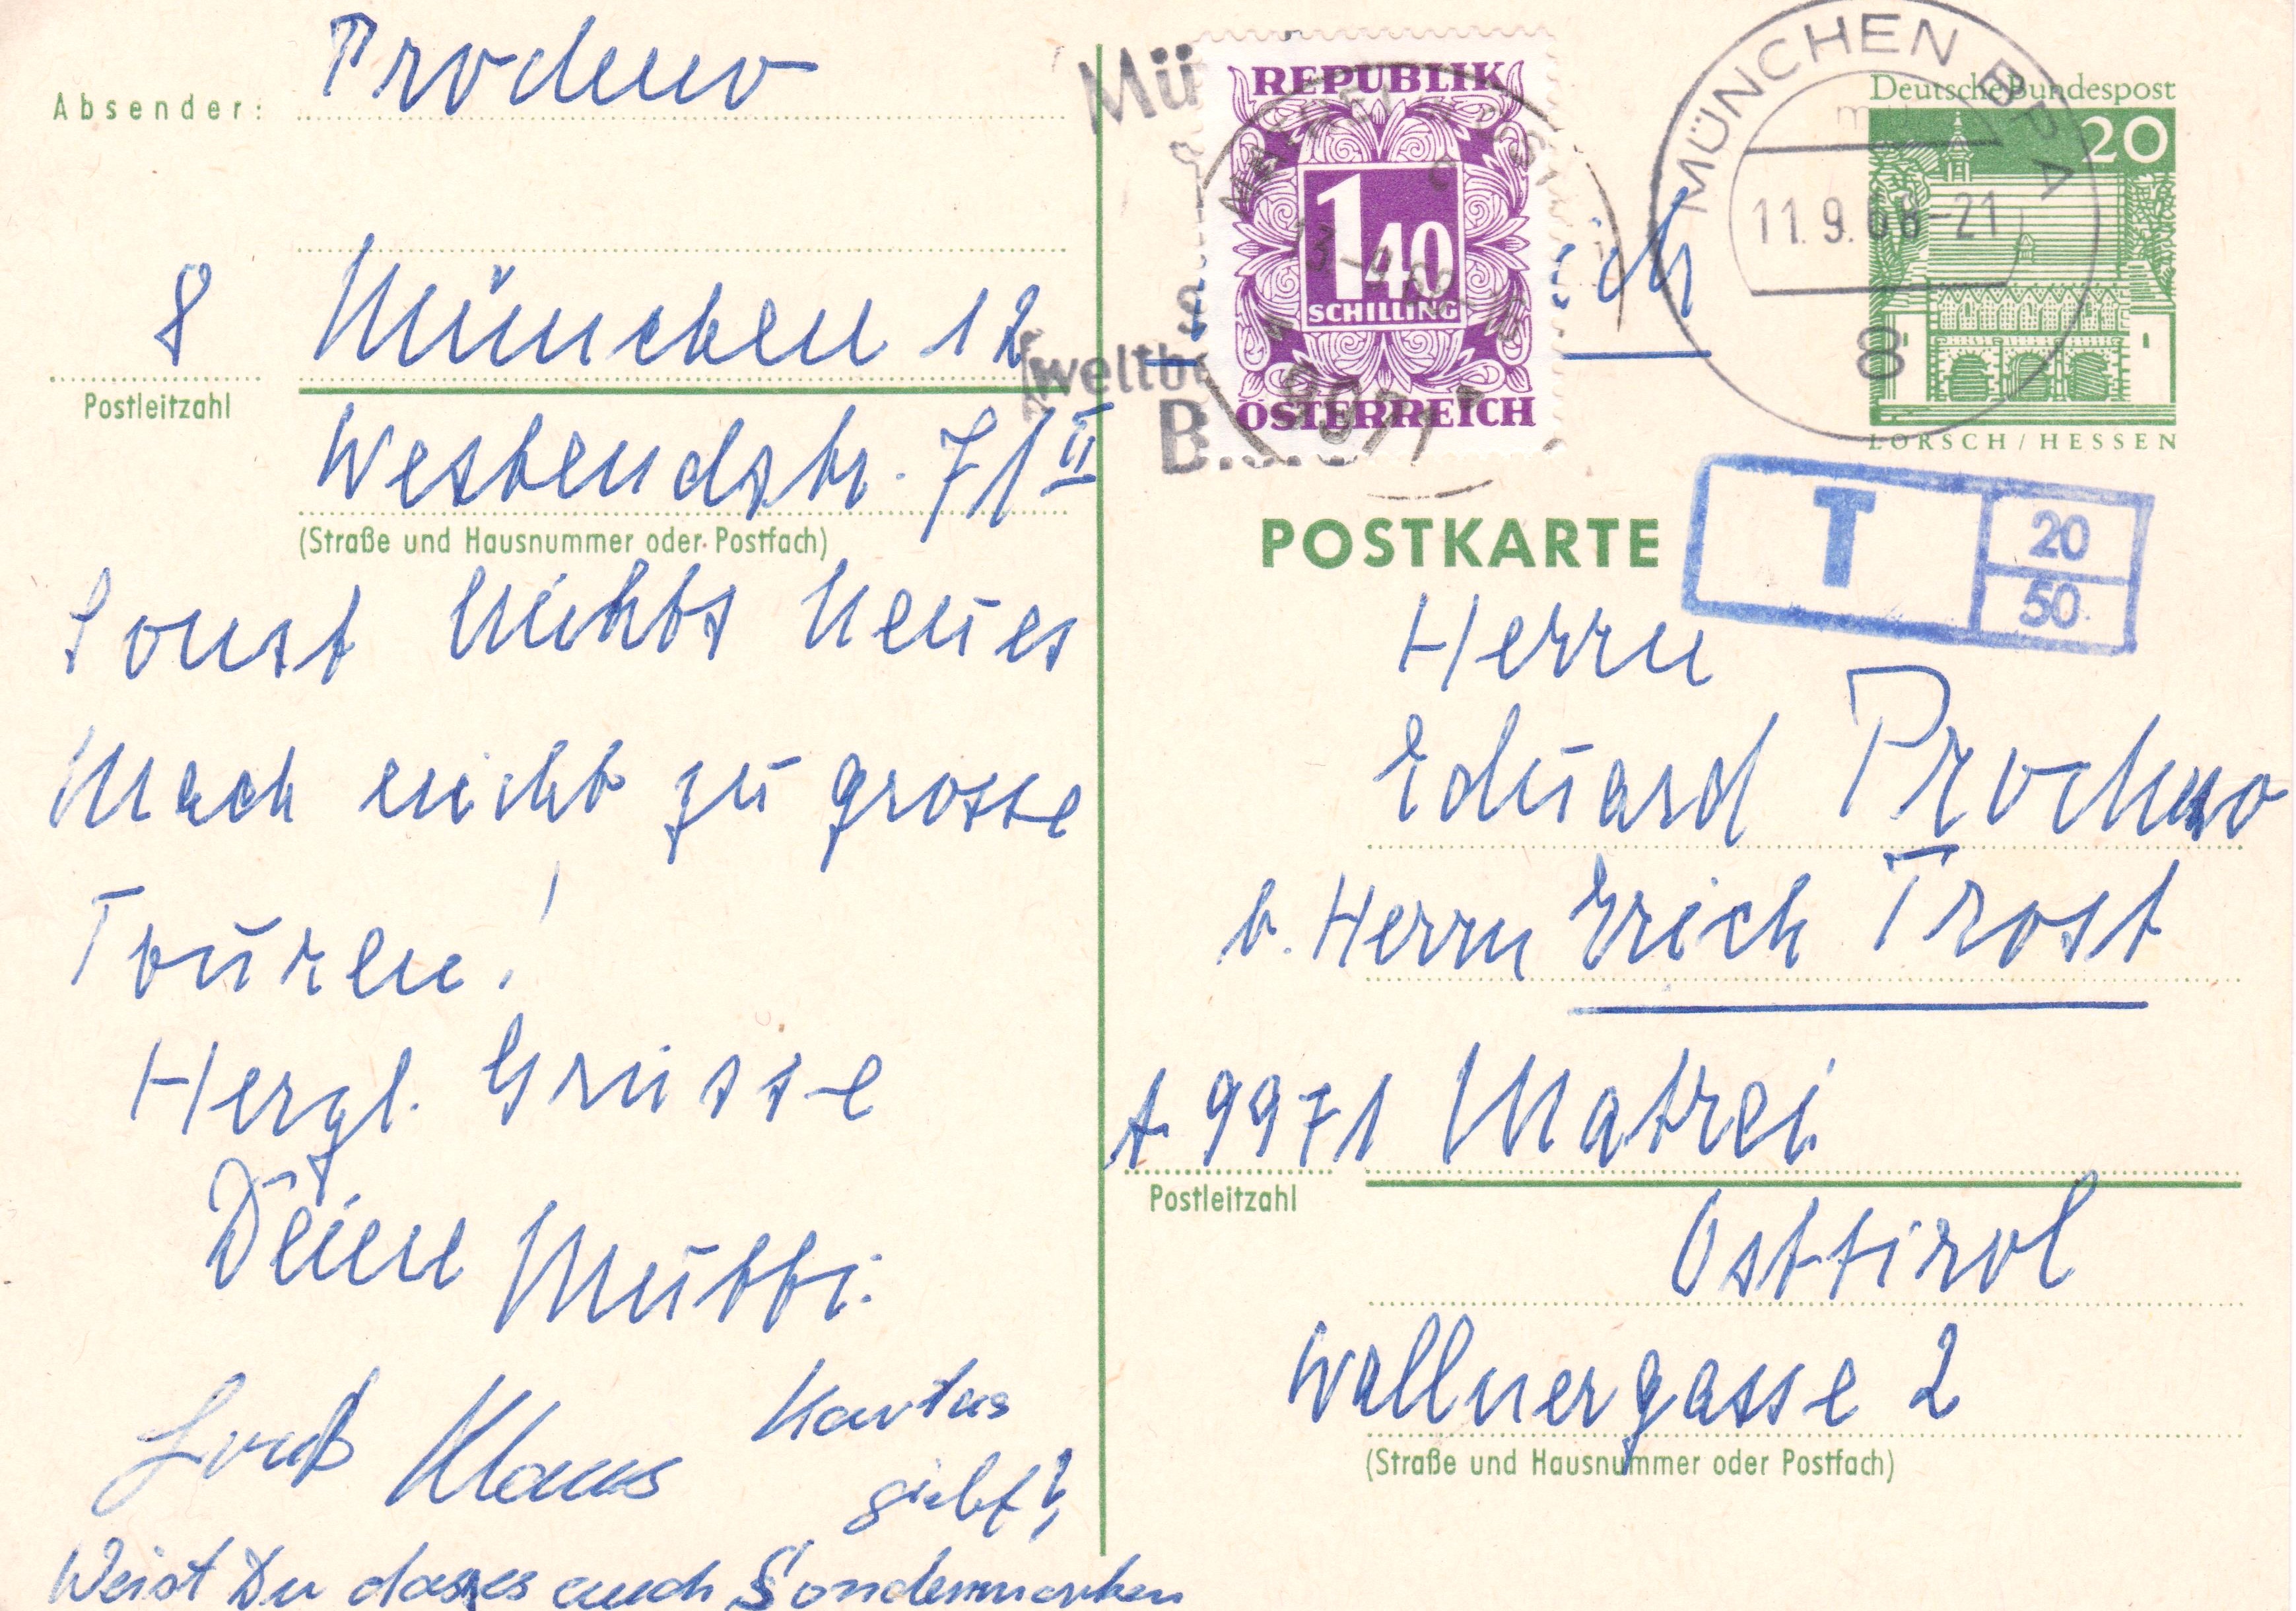 Absender:
8 München 12
Postleitzahl
Westendstr. 71 II
(Straße und Hausnummer oder Postfach)
Sonst nichts neues
Mach nicht zu grosse
Touren!
Herzl. Grüsse
Deine Mutti.
Gruß Klaus
Karten
giebt?
Weist Du dass es auch Sondermarken
Mü
weltbe
B
REPUBLIK
1 40
SCHILLING
ÖSTERREICH
9971
ich
MÜNCHEN BPA
11.9.68-21
8
Deutsche Bundespost
20
LORSCH/HESSEN
POSTKARTE
T 20
50
Herrn
Eduard
b. Herrn Erich Trost
A 9971 Matrei
Postleitzahl
Osttirol
Wallnergasse 2
(Straße und Hausnummer oder Postfach)